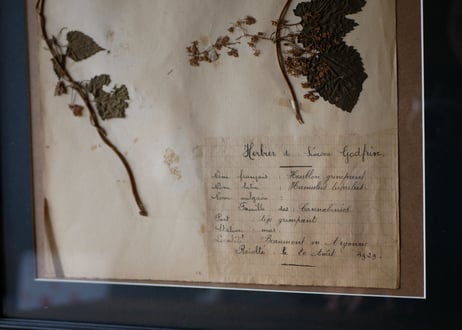 Herbier de Simone Godfrin.
Nom français : Houblon grimpant
Nom latin : Humulus lupulus
Nom vulgaire :
Famille des : Cannabinées
Port : tige grimpant
Station : mur
Localité : Beaumont en Argonne
Récolté : le 20 Août 1929.